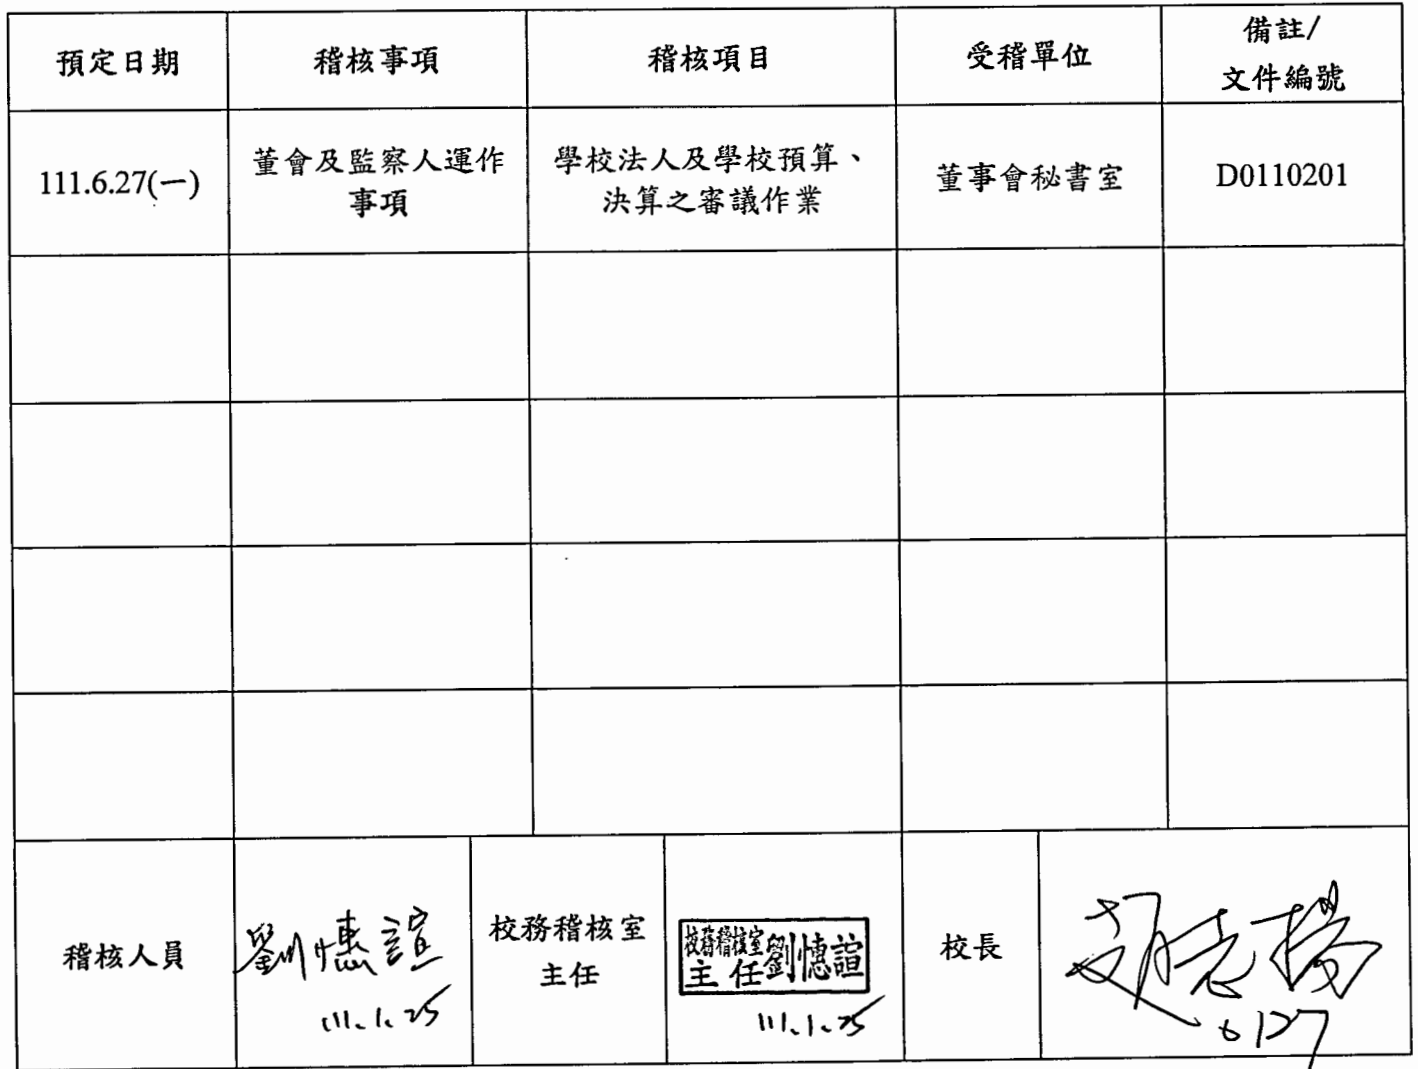 預定日期
稽核事項
稽核項目
受稽單位
備註/
文件編號
111.6.27(一)
董會及監察人運作
事項
學校法人及學校預算、
決算之審議作業
董事會秘書室
D0110201
稽核人員
劉憓諠
111.1.25
校務稽核室
主任
校務稽核室
主任劉憓諠
111.1.25
校長
趙志揚